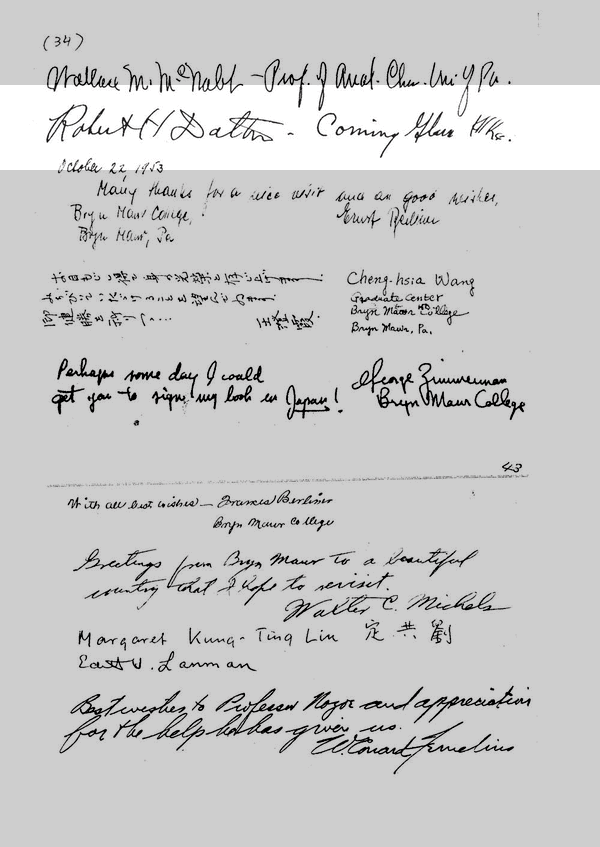 (34)
Wallace M. McNabb - Prof. of Anal. Chem. Uni. of Pa.
Robert H Dalton - Coming Glass Wks.
October 22, 1953
Many thanks for a nice visit and an good wishes,
Bryn Mawr College, Ernst Berliner
Bryn Mawr, Pa
Cheng-hsia Wang
Graduate Center
Bryn Mawr College
Bryn Mawr, Pa.
Perhaps some day I could
get you to sign my book in Japan!
George Zimmerman
Bryn Mawr College
43
With all best wishes - Frances Berliner
Bryn Mawr College
Greetings from Bryn Mawr to a beautiful
country that I hope to revisit.
Walter C. Michels
Margaret Kung-Ting Liu 定共劉
Lanman
Best wishes to Professor Nozoe and appreciation
for the help he has given us.
W. Conard Fernelius